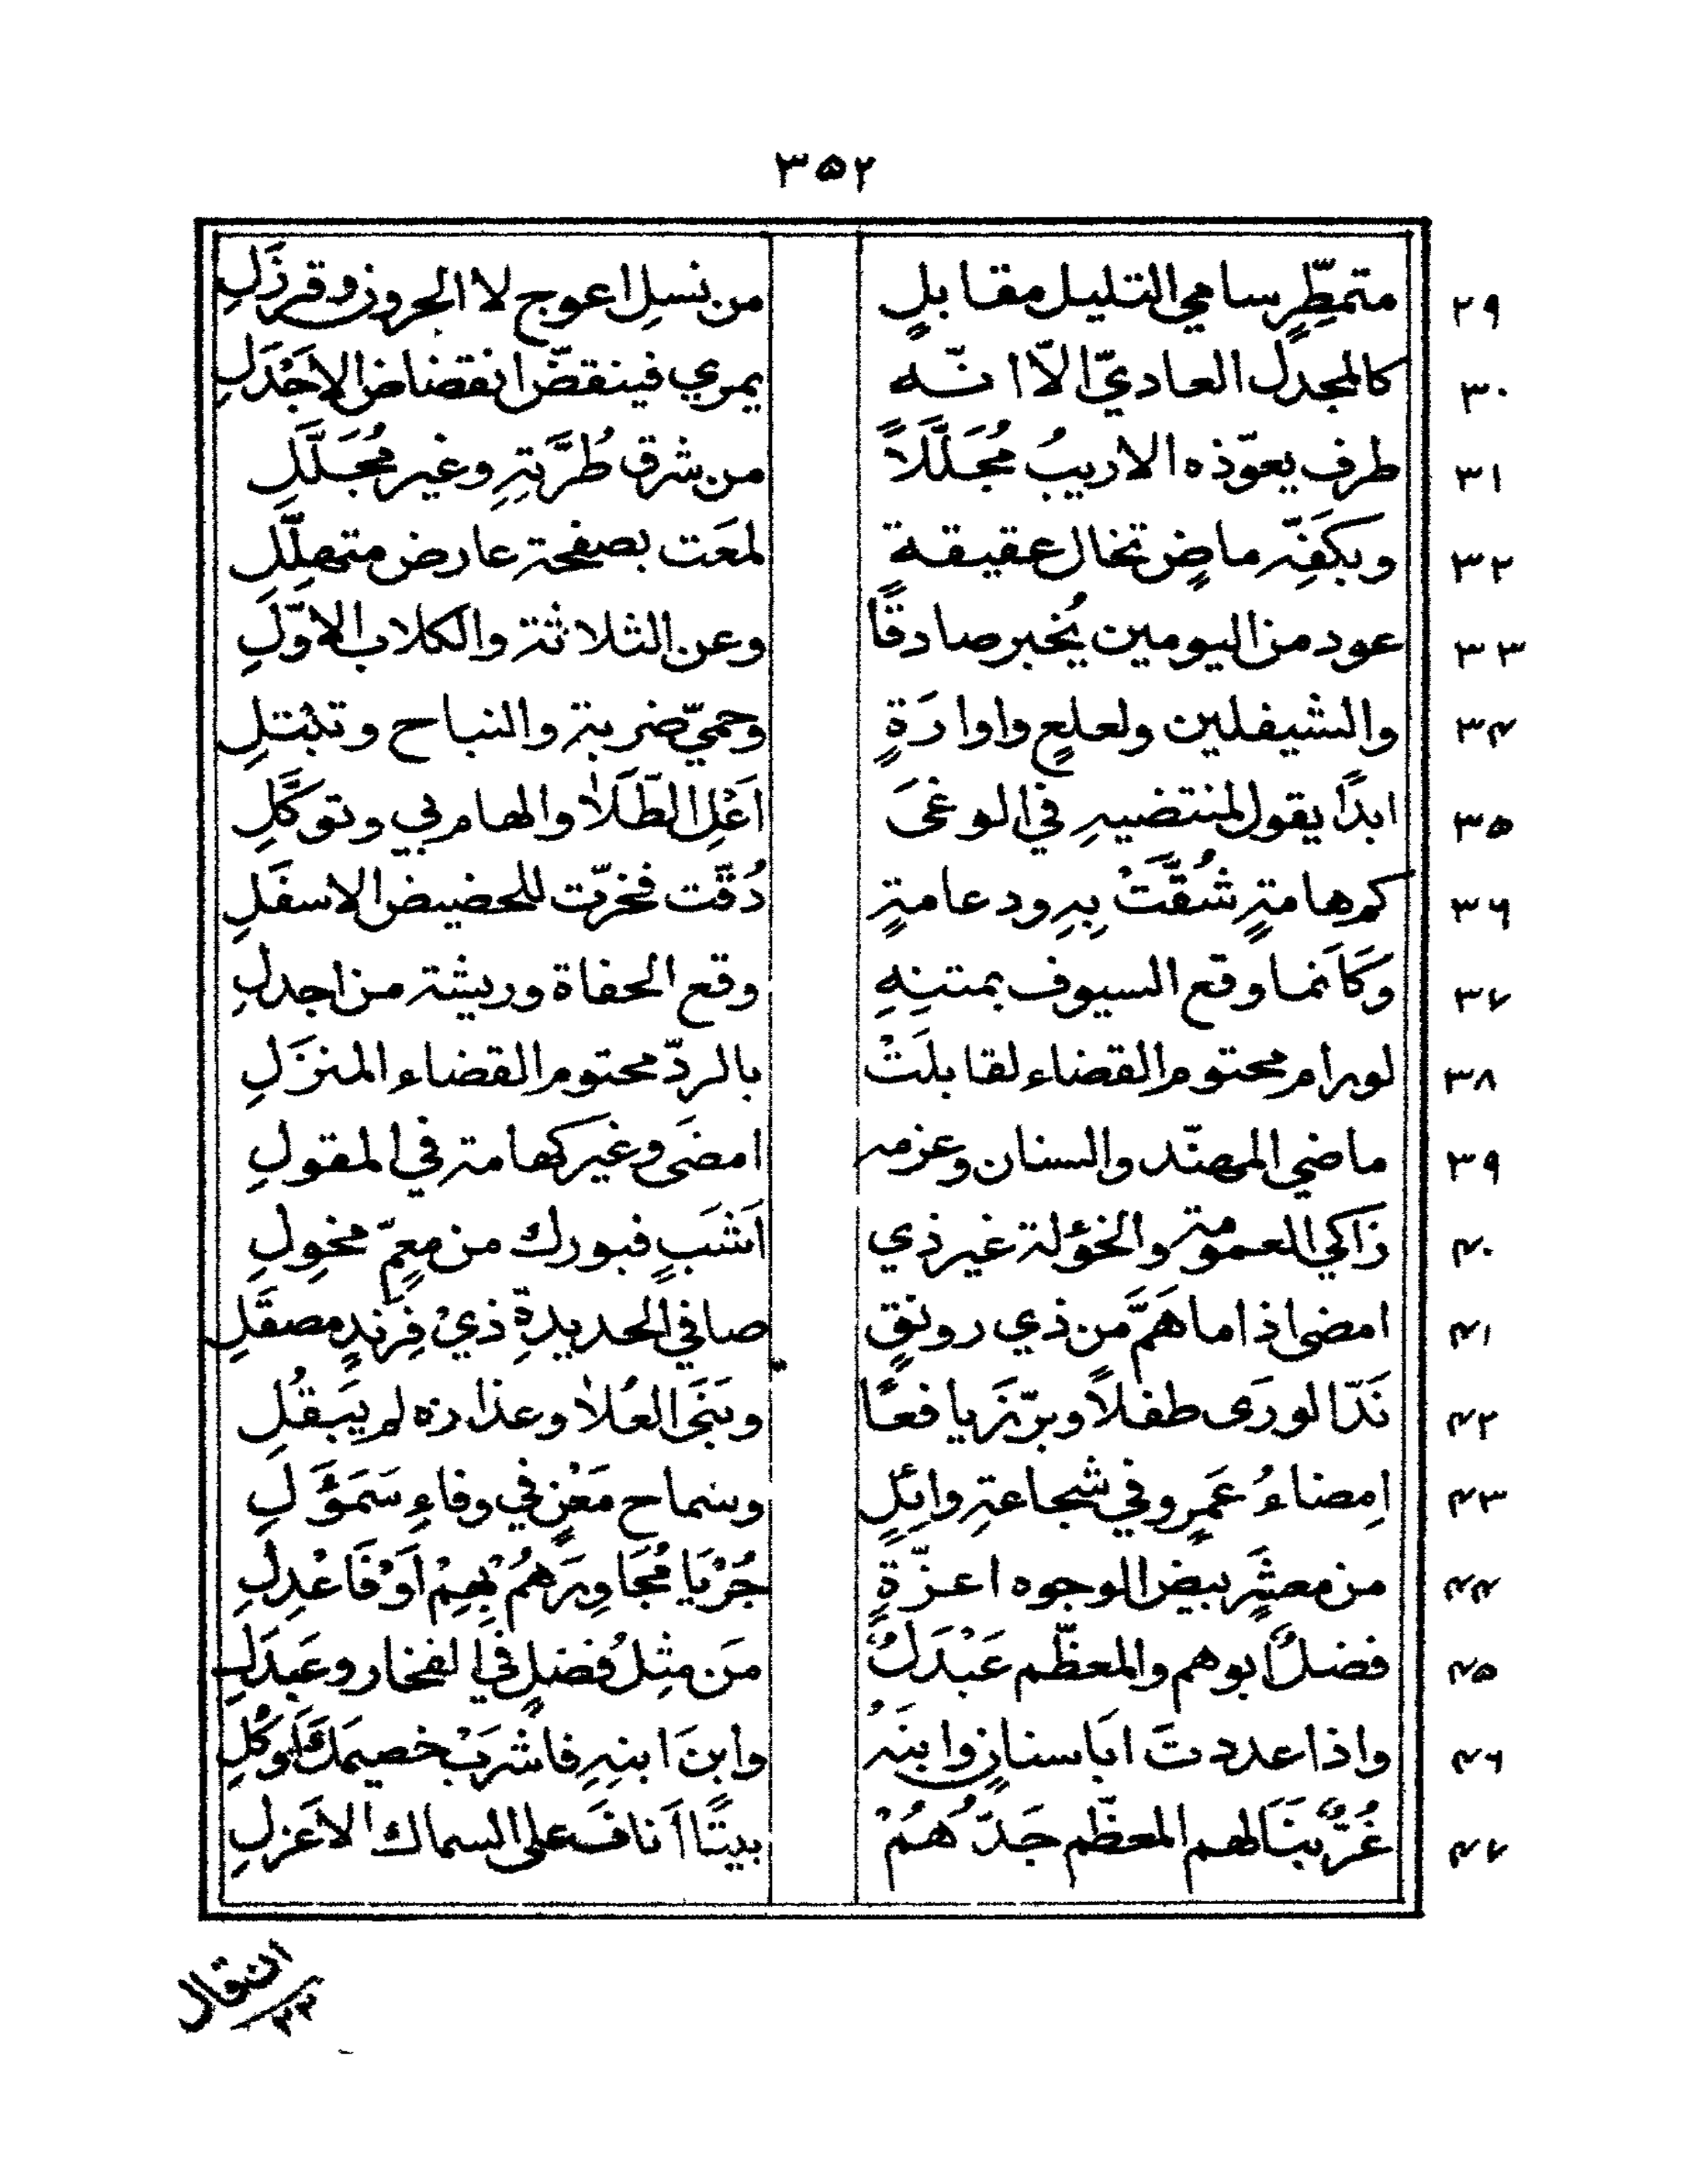 ٣٥٢
٢٩ متمطّرٍ سامي التليل مقابلٍ من نسلِ اعوج لا الجرونِ وقرزَلِ
٣٠ كالمجدل العاديّ الاّ انّه يمري فينقضّ انقضاض الاجْدَلِ
٣١ طرف يعوّذه الاريبُ مُجَلَّلاً من شرق طُرَّتِهِ وغير مُجَلَّلِ
٣٢ وبكفِّه ماضٍ تخال عقيقةٍ لمعَت بصفحة عارض متهلِّلِ
٣٣ عود من اليومين يُخبر صادقًا وعن الثلاثة والكلاب الاوّلِ
٣٤ والشيفلين ولعلعٍ واوارَةٍ وحميّ ضربة والنباح وتيْتلِ
٣٥ ابدًا يقول لمنتضيهِ في الوغىَ اَعْلِ الطَّلَلا والهام بي وتوكَّلِ
٣٦ كم هامةٍ شُقَّتْ بِهِ ودعامةٍ دُقّت فخرّت للحضيض الاسفَلِ
٣٧ وكَاَنما وقع السيوف بمتنِهِ وقع الحفاة وريشة من اجدلِ
٣٨ لورام محتوم القضاء لقابلَتْ بالردّ محتوم القضاء المنزَلِ
٣٩ ماضي المهنّد والسنان وعزمه امضَى وغير كهامة في المقولِ
٤٠ زاكي العمومة والخؤلة غير ذي اَشَبٍ فبورك من مِعِمّ مخوِلِ
٤١ امضى اذا ما هَمَّ من ذي رونقٍ صافي الحديدةِ ذيْ فِرَندٍ مصقَّلِ
٤٢ نَدّا لورَى طفلاً وبرّزَ يافعًا وبنَى العُلا وعذاره لم يَبقُلِ
٤٣ اِمضاءُ عَمرٍو في شجاعةِ وائلٍ وسماح مَعْنٍ في وفاءِ سَمَوَّلِ
٤٤ من معشرٍ بيض الوجوه اعزّةٍ جُزْ يا مُجَاوِرَهُمْ بهِمْ اَوْ فَاعْدِلِ
٤٥ فضلٌ ابوهم والمعظّم عَبْدَلٌ مَن مثِلُ فضلٍ في الفخار وعَبدَلِ
٤٦ واذا عددتَ اَبا سنانٍ وابنَهُ وابنَ ابنهِ فاشربْ خصيمَكَ اَوْكُلِ
٤٧ غُرٌّ بنَا لهم المعظّم جَدّهُمْ بيتًا اَنافَ على السماك الاعزلِ
انتقال